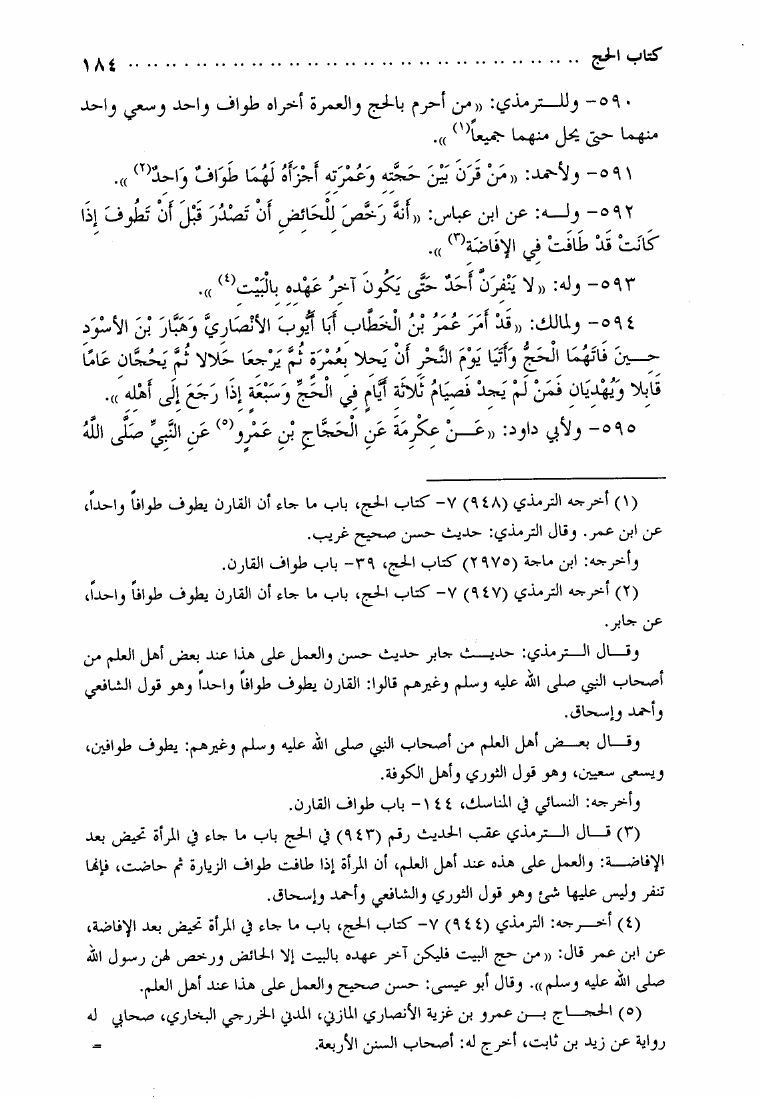 كتاب الحج ............................................ ١٨٤
٥٩٠- وللـــترمذي: «من أحرم بالحج والعمرة أخراه طواف واحد وسعي واحد
منهما حتى يحل منهما جميعاً(١)».
٥٩١- ولأحمد: «مَنْ قَرَنَ بَيْنَ حَجَّتِهِ وَعُمْرَتِهِ أَجْزَأَهُ لَهُمَا طَوَافٌ وَاحِدٌ(٢)».
٥٩٢- ولـــه: عن ابن عباس: «أَنَّهُ رَخَّصَ لِلْحَائِضِ أَنْ تَصْدُرَ قَبْلَ أَنْ تَطُوفَ إِذَا
كَانَتْ قَدْ طَافَتْ فِي الإِفَاضَةِ(٣)».
٥٩٣- وله: «لا يَنْفِرَنَّ أَحَدٌ حَتَّى يَكُونَ آخِرُ عَهْدِهِ بِالْبَيْتِ(٤)».
٥٩٤- ولمالك: «قَدْ أَمَرَ عُمَرُ بْنُ الْخَطَّابِ أَبَا أَيُّوبَ الأَنْصَارِيَّ وَهَبَّارَ بْنَ الأَسْوَدِ
حِـــينَ فَاتَهُمَا الْحَجُّ وَأَتَيَا يَوْمَ النَّحْرِ أَنْ يَحِلا بِعُمْرَةٍ ثُمَّ يَرْجِعَا حَلالا ثُمَّ يَحُجَّانِ عَامًا
قَابِلا وَيُهْدِيَانِ فَمَنْ لَمْ يَجِدْ فَصِيَامُ ثَلاثَةِ أَيَّامٍ فِي الْحَجِّ وَسَبْعَةٍ إِذَا رَجَعَ إِلَى أَهْلِهِ».
٥٩٥- ولأبي داود: «عَـــنْ عِكْرِمَةَ عَنِ الْحَجَّاجِ بْنِ عَمْرٍو(٥) عَنِ النَّبِيِّ صَلَّى اللَّهُ
(١) أخرجه الترمذي (٩٤٨) ٧- كتاب الحج، باب ما جاء أن القارن يطوف طوافاً واحداً،
عن ابن عمر. وقال الترمذي: حديث حسن صحيح غريب.
وأخرجه: ابن ماجة (٢٩٧٥) كتاب الحج، ٣٩- باب طواف القارن.
(٢) أخرجه الترمذي (٩٤٧) ٧- كتاب الحج، باب ما جاء أن القارن يطوف طوافاً واحداً،
عن جابر.
وقـــال الـــترمذي: حديـــث جابر حديث حسن والعمل على هذا عند بعض أهل العلم من
أصحاب النبي صلى الله عليه وسلم وغيرهم قالوا: القارن يطوف طوافاً واحداً وهو قول الشافعي
وأحمد وإسحاق.
وقـــال بعـــض أهل العلم من أصحاب النبي صلى الله عليه وسلم وغيرهم: يطوف طوافين،
ويسعى سعيين، وهو قول الثوري وأهل الكوفة.
وأخرجه: النسائي في المناسك، ١٤٤- باب طواف القارن.
(٣) قـــال الـــترمذي عقب الحديث رقم (٩٤٣) في الحج باب ما جاء في المرأة تحيض بعد
الإفاضـــة: والعمل على هذه عند أهل العلم، أن المرأة إذا طافت طواف الزيارة ثم حاضت، فإنها
تنفر وليس عليها شئ وهو قول الثوري والشافعي وأحمد وإسحاق.
(٤) أخـــرجه: الترمذي (٩٤٤) ٧- كتاب الحج، باب ما جاء في المرأة تحيض بعد الإفاضة،
عن ابن عمر قال: «من حج البيت فليكن آخر عهده بالبيت إلا الحائض ورخص لهن رسول الله
صلى الله عليه وسلم». وقال أبو عيسى: حسن صحيح والعمل على هذا عند أهل العلم.
(٥) الحجـــاج بـــن عمرو بن غزية الأنصاري المازني، المدني الخزرجي البخاري، صحابي له
رواية عن زيد بن ثابت، أخرج له: أصحاب السنن الأربعة. =